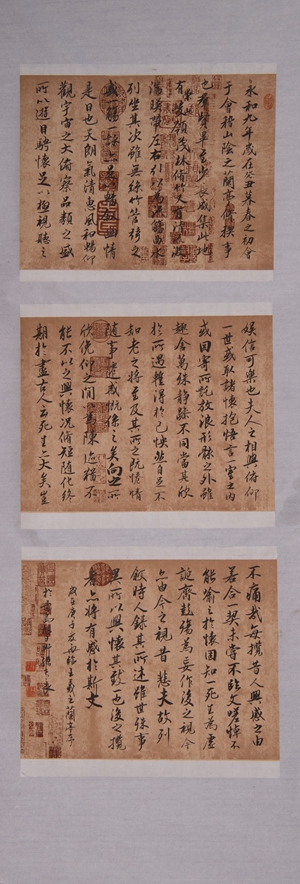 永和九年歲在癸丑暮春之初會
于會稽山陰之蘭亭脩禊事
也羣賢畢至少長咸集此地
有崇山峻領茂林脩竹又有清流激
湍暎帶左右引以為流觴曲水
列坐其次雖無絲竹管弦之
盛一觴一詠亦足以暢敘幽情
是日也天朗氣清惠風和暢仰
觀宇宙之大俯察品類之盛
所以遊目騁懷足以極視聽之
娛信可樂也夫人之相與俯仰
一世或取諸懷抱悟言一室之內
或因寄所託放浪形骸之外雖
趣舍萬殊靜躁不同當其欣
於所遇暫得於己怏然自足不
知老之將至及其所之既惓情
隨事遷感慨係之矣向之所
欣俛仰之閒以為陳迹猶不
能不以之興懷況脩短隨化終
期於盡古人云死生亦大矣豈
不痛哉每攬昔人興感之由
若合一契未嘗不臨文嗟悼不
能喻之於懷固知一死生為虛
誕齊彭殤為妄作後之視今
亦由今之視昔悲夫故列
敘時人錄其所述雖世殊事
異所以興懷其致一也後之攬
者亦將有感於斯文
臨王羲之蘭亭序